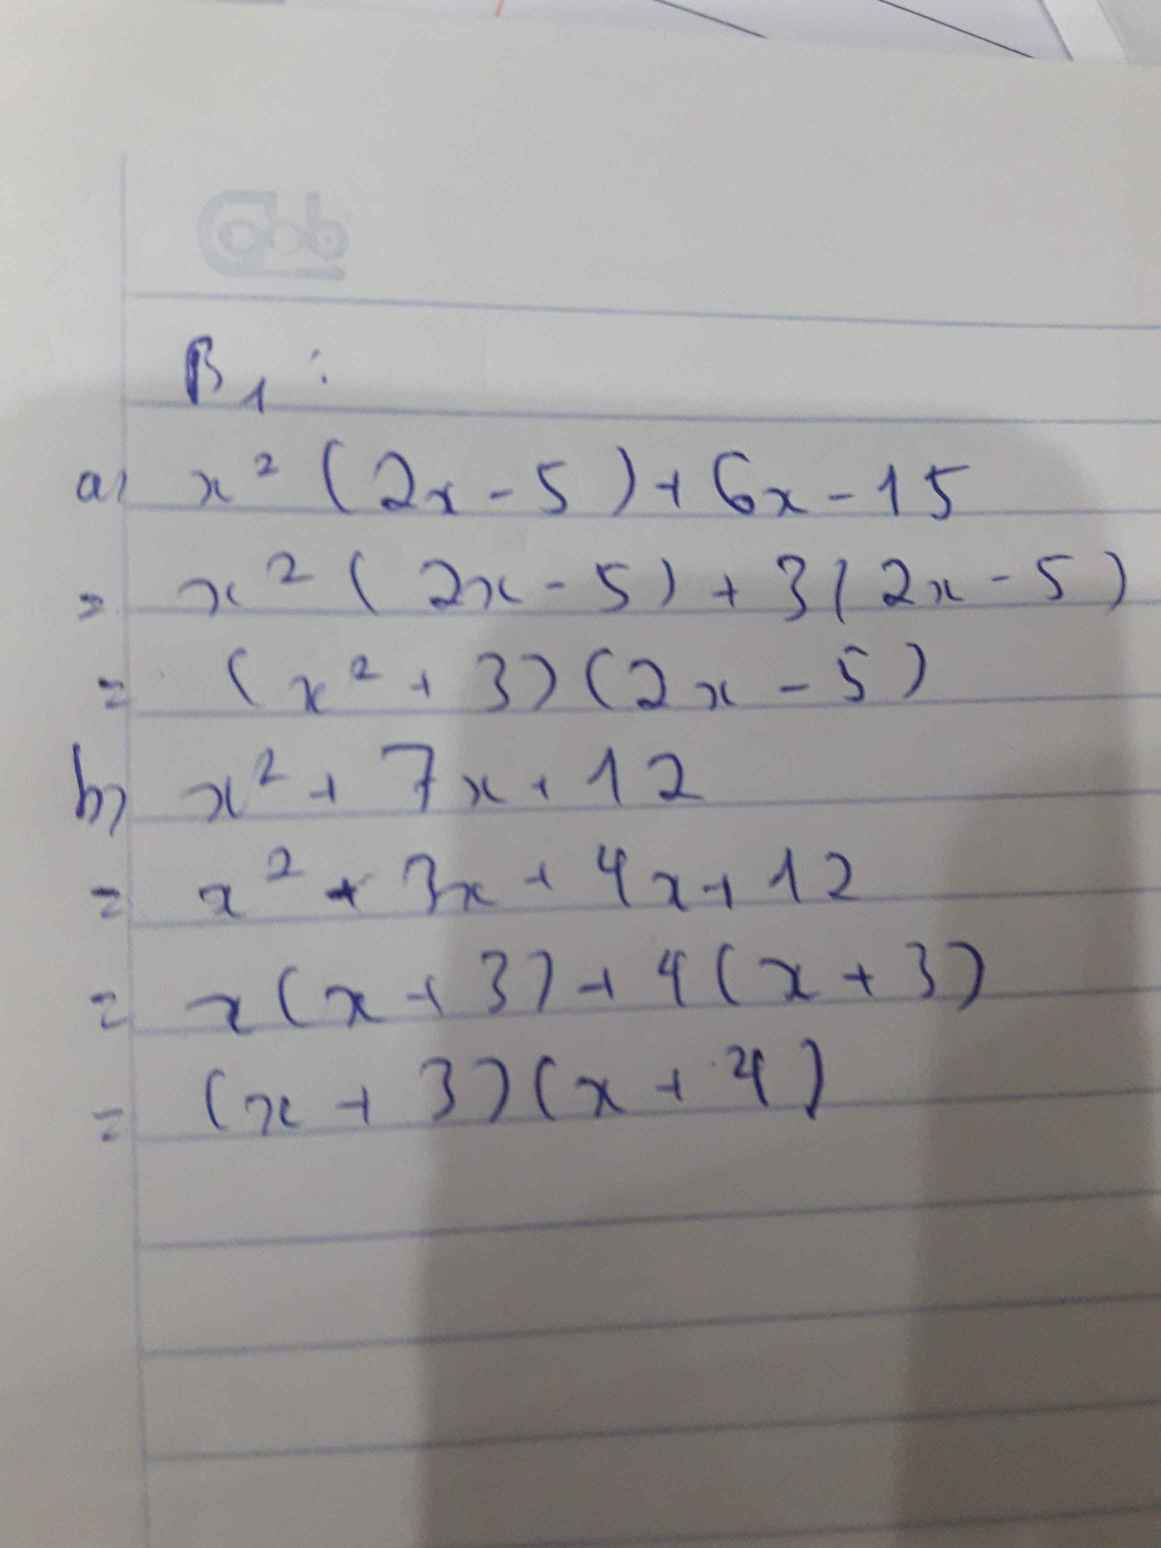 B1:
a) x² (2x - 5) + 6x - 15
= x² (2x - 5) + 3(2x - 5)
= (x² + 3)(2x - 5)
b) x² + 7x + 12
= x² + 3x + 4x + 12
= x(x + 3) + 4(x + 3)
= (x + 3)(x + 4)